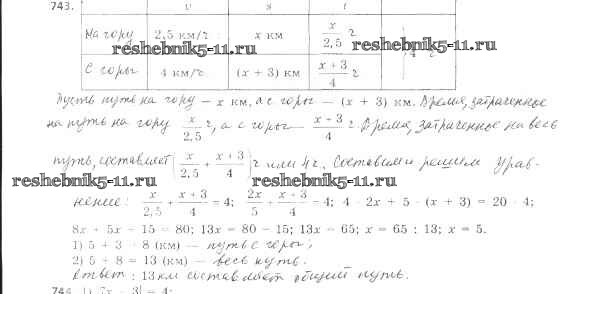 743.
v s t
На гору 2,5 км/ч x км x/2,5 ч
reshebnik5-11.ru 4 ч
С горы 4 км/ч (x + 3) км (x + 3)/4 ч
Пусть путь на гору – x км, а с горы – (x + 3) км. Время, затраченное
на путь на гору x/2,5 ч, а с горы – (x + 3)/4 ч. Время, затраченное на весь
путь, составляет (x/2,5 + (x + 3)/4) ч или 4 ч. Составим и решим урав-
reshebnik5-11.ru reshebnik5-11.ru
нение: x/2,5 + (x + 3)/4 = 4; 2x/5 + (x + 3)/4 = 4; 4 · 2x + 5 · (x + 3) = 20 · 4;
8x + 5x + 15 = 80; 13x = 80 – 15; 13x = 65; x = 65 : 13; x = 5.
1) 5 + 3 = 8 (км) – путь с горы;
2) 5 + 8 = 13 (км) – весь путь.
Ответ: 13 км составляет общий путь.